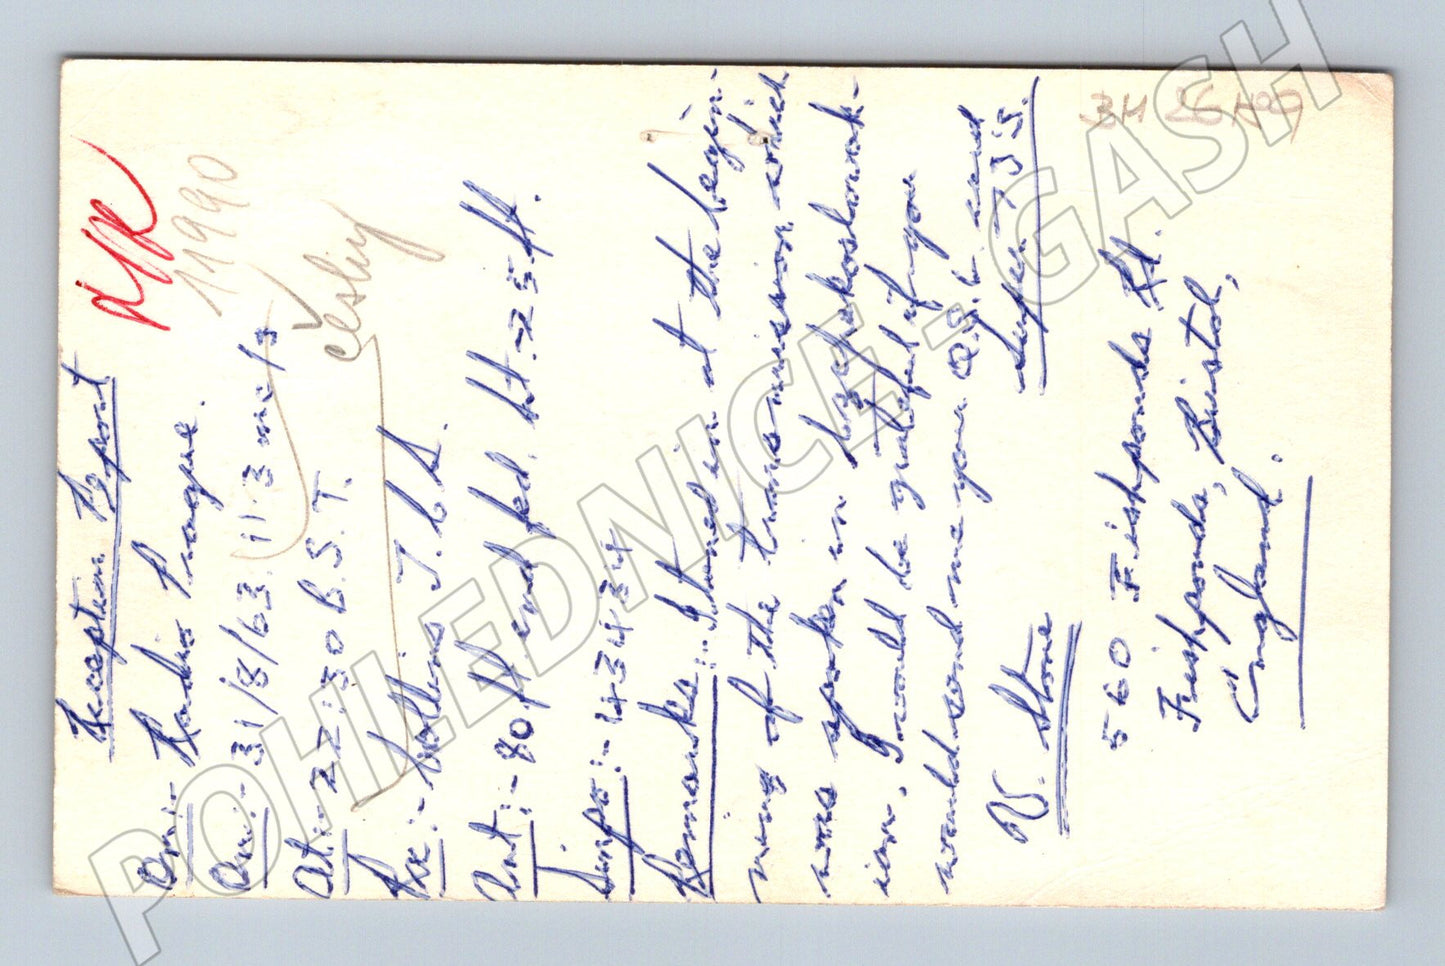 Reception Report
On:- Radio Prague.
On:- 31/8/63. 11.3 mc/s
At:- 22:30 B.S.T.
Rx:- Collins T.C.S.
Ant:- 80 ft end fed. ht.-25 ft.
Sinpo:- 43434
Remarks:- I tuned in at the begin-
ning of the transmission which
was spoken in Czechoslovak-
ian. I would be grateful if you
would send me your Q.S.L. and
V. Stone
560 Fishponds Rd.
Fishponds, Bristol,
England.
11990
česky
POHLEDNICE - GASH